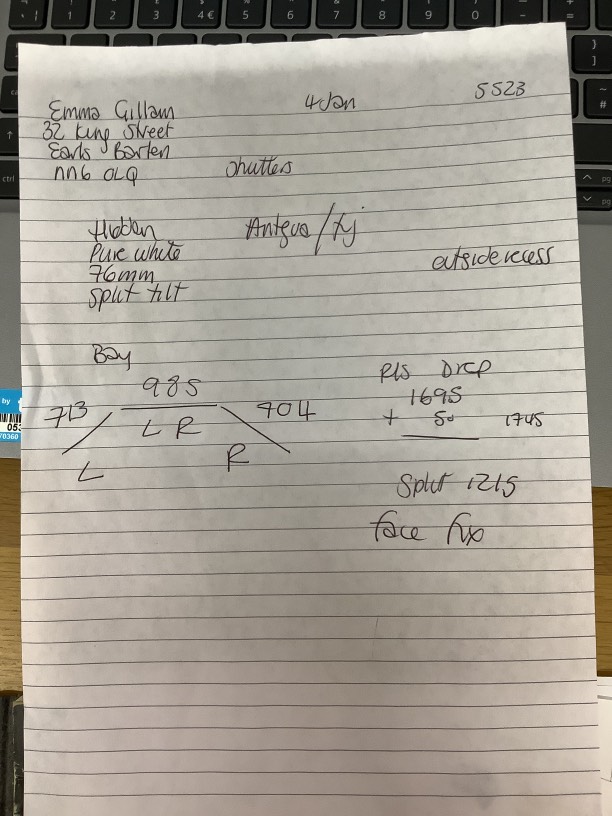 5523
4 Jan
Emma Gillam
32 King Street
Earls Barten
NN6 0LQ
Shutters
Hidden
Pure white
76mm
Split tilt
Antgua /
outside recess
Bay
985
713
704
L R
L
R
Pls Drop
1695
+ 50 1745
Split 1215
face fix